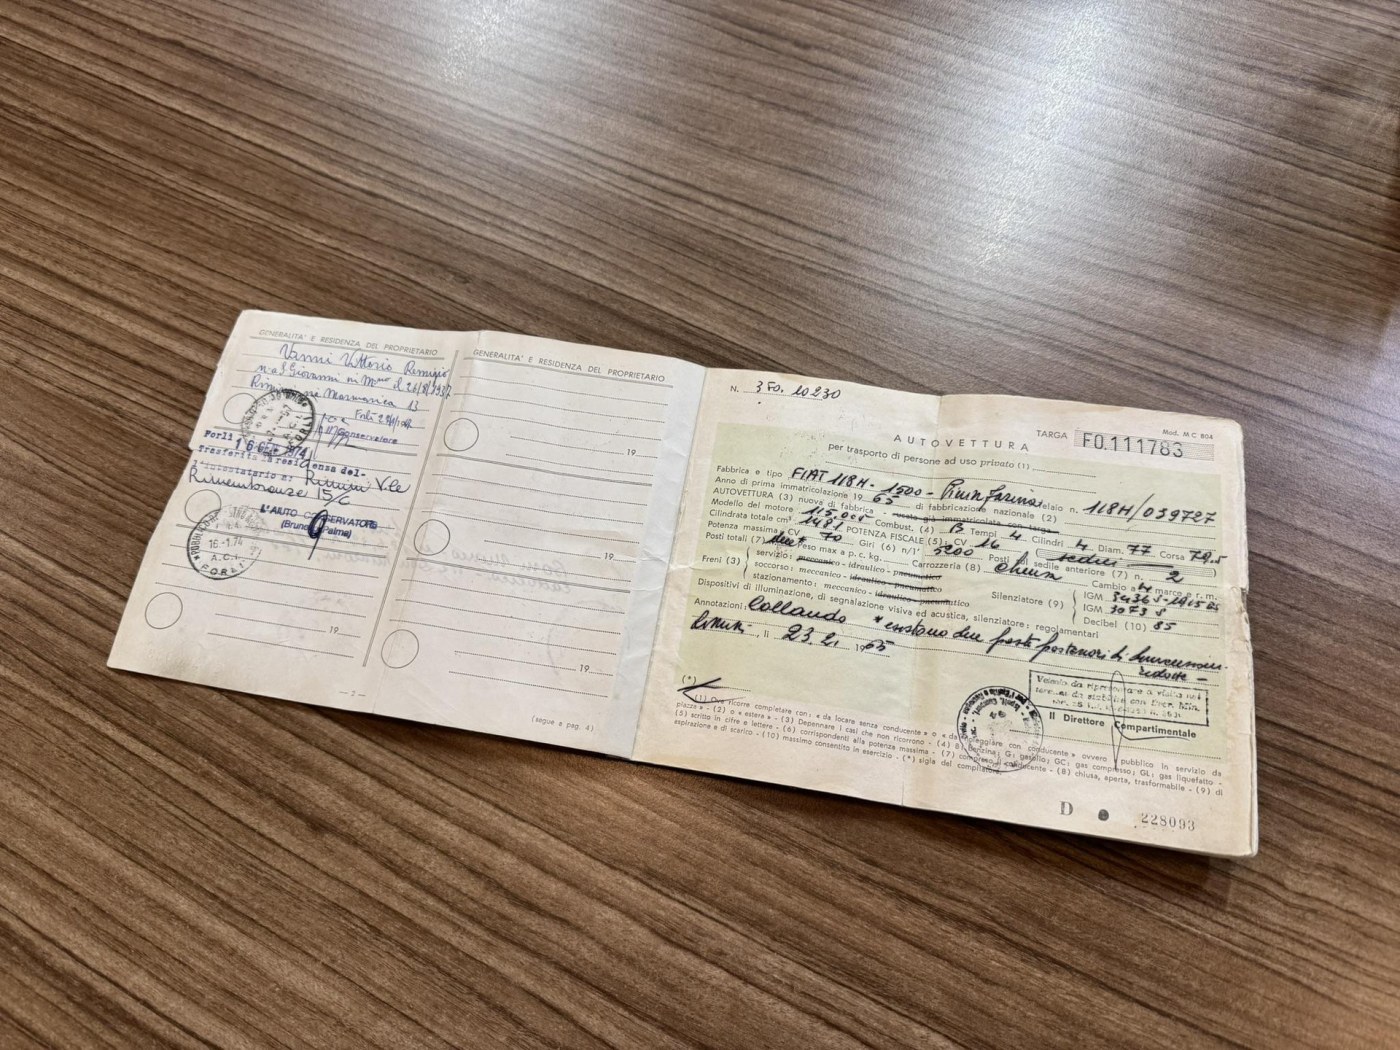 GENERALITA' E RESIDENZA DEL PROPRIETARIO
Vanni Vittorio Remigio
n. a S. Giovanni in M.no il 26/8/1937
Rimini
Marmarica 13
Forlì
Conservatore
Forlì 16 GEN. 1974
Trasferita la residenza del-
l'intestatario a: Rimini V.le
Rimembranze 15/C
L'AIUTO CONSERVATORE
(Bruno Palma)
16-1.74
A.C.I.
FORLI
19
— 2 —
GENERALITA' E RESIDENZA DEL PROPRIETARIO
19
19
19
(segue a pag. 4)
N. 3 FO. 10230
Mod. M C 804
AUTOVETTURA
TARGA FO.111783
per trasporto di persone ad uso privato (1)
Fabbrica e tipo FIAT 118H - 1500 - Pinin Farina telaio n. 118H/039727
Anno di prima immatricolazione 1965 di fabbricazione nazionale (2)
AUTOVETTURA (3) nuova di fabbrica - usata già immatricolata con targa
Modello del motore 115.005 Combust. (4) B Tempi 4 Cilindri 4 Diam. 77 Corsa 79.5
Cilindrata totale cm³ 1481 POTENZA FISCALE (5): CV 16
Potenza massima CV 70 Giri (6) n/1' 5200 Posti sedile anteriore (7) n. 2
Posti totali (7) due* Peso max a p. c. kg. Carrozzeria (8) chiusa Cambio a 4 marce e r. m.
Freni (3) servizio: meccanico - idraulico - pneumatico
soccorso: meccanico - idraulico - pneumatico
stazionamento: meccanico - idraulico - pneumatico
Silenziatore (9) IGM 3436 S
IGM 3073 S
Decibel (10) 85
Dispositivi di illuminazione, di segnalazione visiva ed acustica, silenziatore: regolamentari
Annotazioni: Collaudo * esistono due posti posteriori di dimensioni
ridotte
Rimini, li 23.2. 1965
Il Direttore Compartimentale
(*)
(1) Ove ricorre completare con: « da locare senza conducente » o « da noleggiare con conducente » ovvero « pubblico in servizio da
piazza » - (2) o « estera » - (3) Depennare i casi che non ricorrono - (4) B: Benzina; G: gasolio; GC: gas compresso; GL: gas liquefatto -
(5) scritto in cifre e lettere - (6) corrispondenti alla potenza massima - (7) compreso il conducente - (8) chiusa, aperta, trasformabile - (9) di
aspirazione e di scarico - (10) massimo consentito in esercizio - (*) sigla del compilatore
D 228093